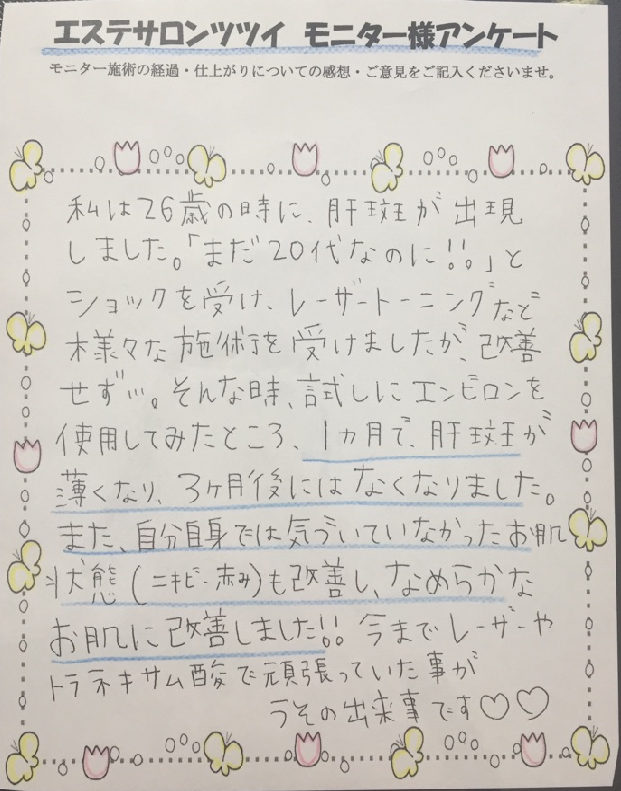 エステサロンツツイ モニター様アンケート
モニター施術の経過・仕上がりについての感想・ご意見をご記入くださいませ。
私は26歳の時に、肝斑が出現
しました。「まだ20代なのに!!。」と
ショックを受け、レーザートーニングなど
様々な施術を受けましたが、改善
せず…。そんな時、試しにエンビロンを
使用してみたところ、1ヵ月で、肝斑が
薄くなり、3ヶ月後にはなくなりました。
また、自分自身では気づいていなかったお肌
状態(ニキビ・赤み)も改善し、なめらかな
お肌に改善しました!!今までレーザーや
トラネキサム酸で頑張っていた事が
うその出来事です♡♡